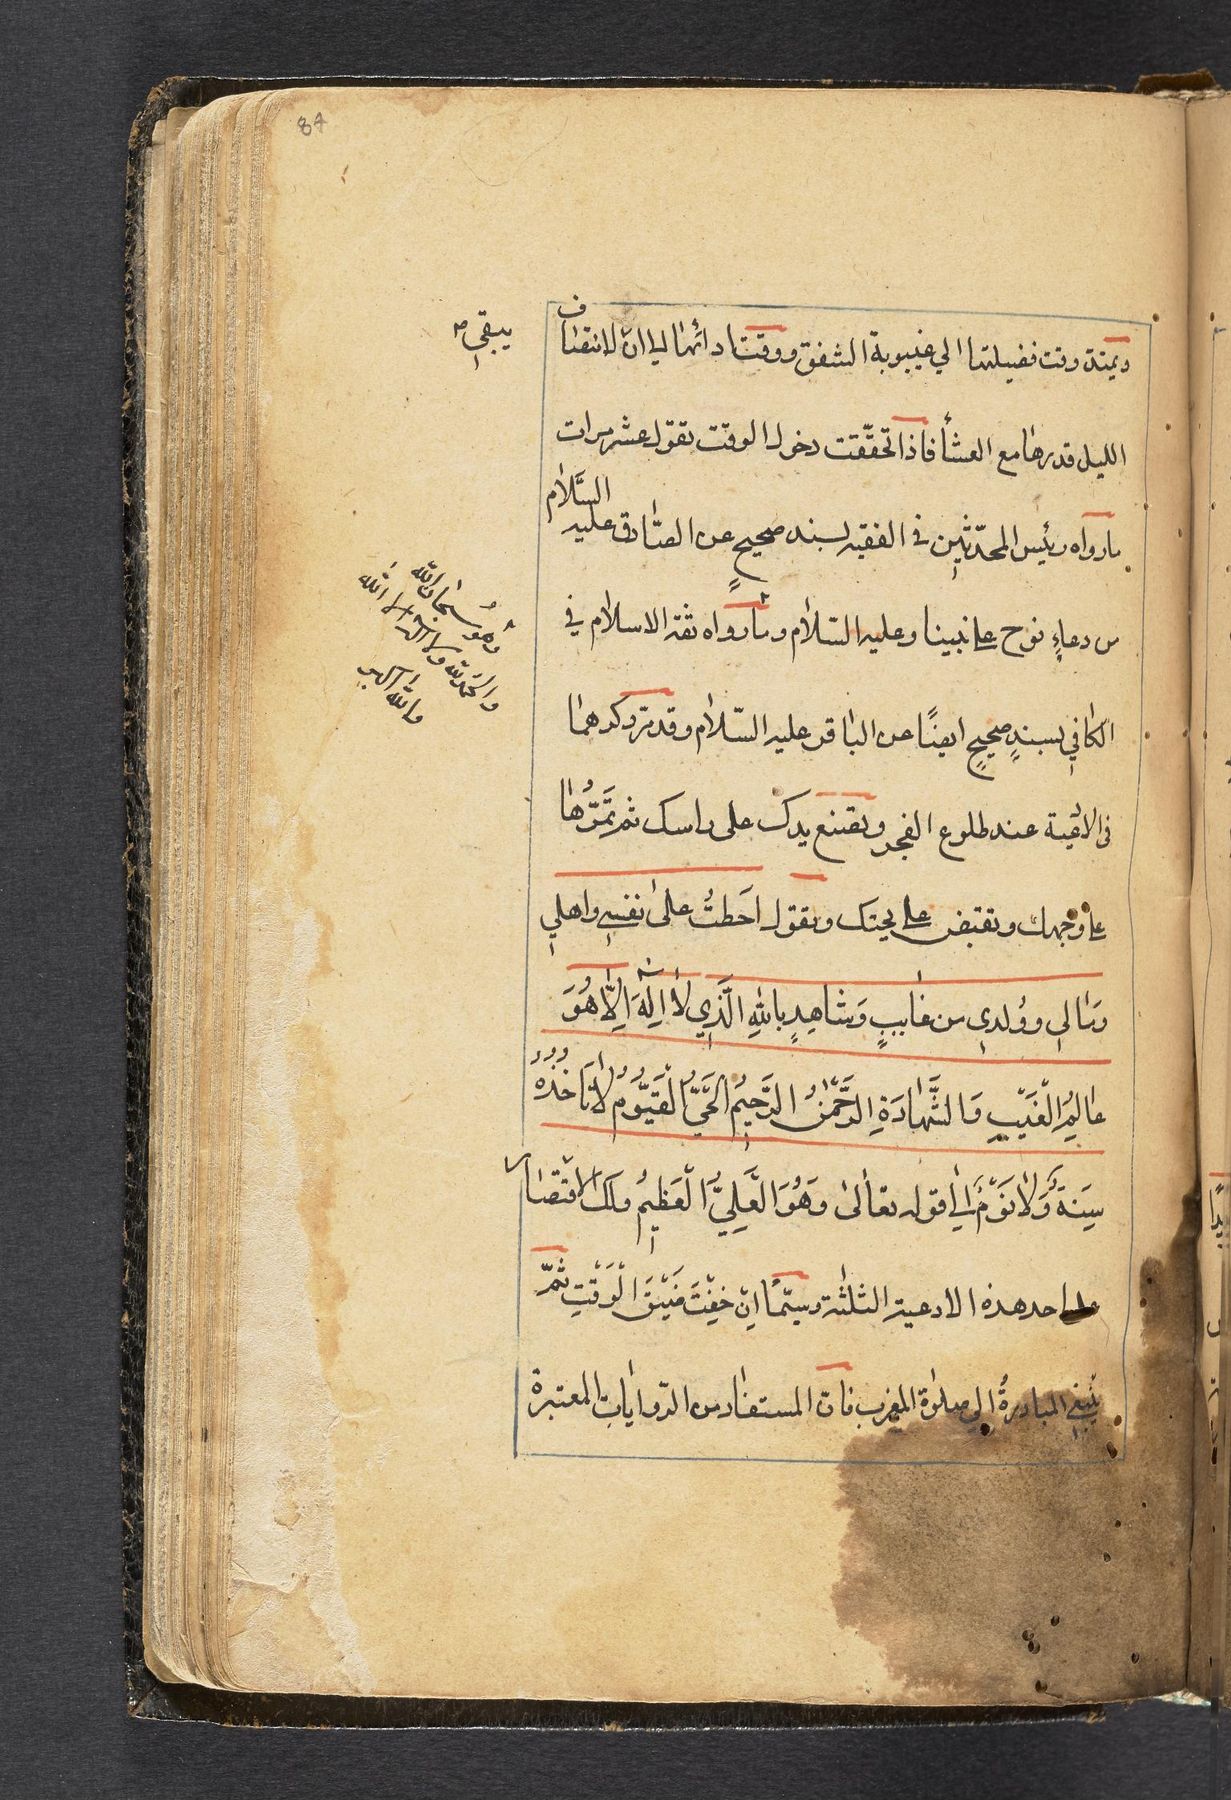 84
ويمتد وقت فضيلتها الي غيبوبة الشفق ووقت ادائها الي ان لانتصاف
يبقي
الليل قدرها مع العشأ فاذا تحققت دخول الوقت تقول عشر مرات
مارواه رئيس المحدّثين في الفقيه بسند صحيحٍ عن الصّادق عليه السَّلام
من دعاءِ نوح على نبينا وعليه السّلام وما رواه ثقة الاسلام في
وهو سُبحان الله
والحمد لله ولا اله الا الله
والله اكبر
الكافي بسندٍ صحيحٍ ايضًا عن الباقر عليه السّلام وقد مرّ ذكرهما
في الادعية عند طلوع الفجر وتضع يدك على راسك ثم تَمُرُّها
على وجهك وتقبض على لحيتك وتقول احَطتُ على نفسي واهلي
وَمالي ووُلدي من غايبٍ وَشاهِدٍ بِاللهِ الَّذي لا اِلٰهَ اِلَّا هُوَ
عالِمُ الْغَيْبِ وَالشَّهادَةِ الرَّحْمٰنُ الرَّحيمُ الْحَيُّ الْقَيُّومُ لا تَاخُذُهُ
سِنَةٌ وَلا نَوْمٌ الي قوله تعالى وَهُوَ الْعَلِيُّ الْعَظيمُ ولك الاقتصار
على احد هذه الادعية الثلثة وسيّما اِنْ خِفْتَ ضَيْقَ الْوَقْتِ ثمّ
ينبغي المبادرةُ الي صلوة المغرب فان المستفاد من الرّوايات المعتبرة